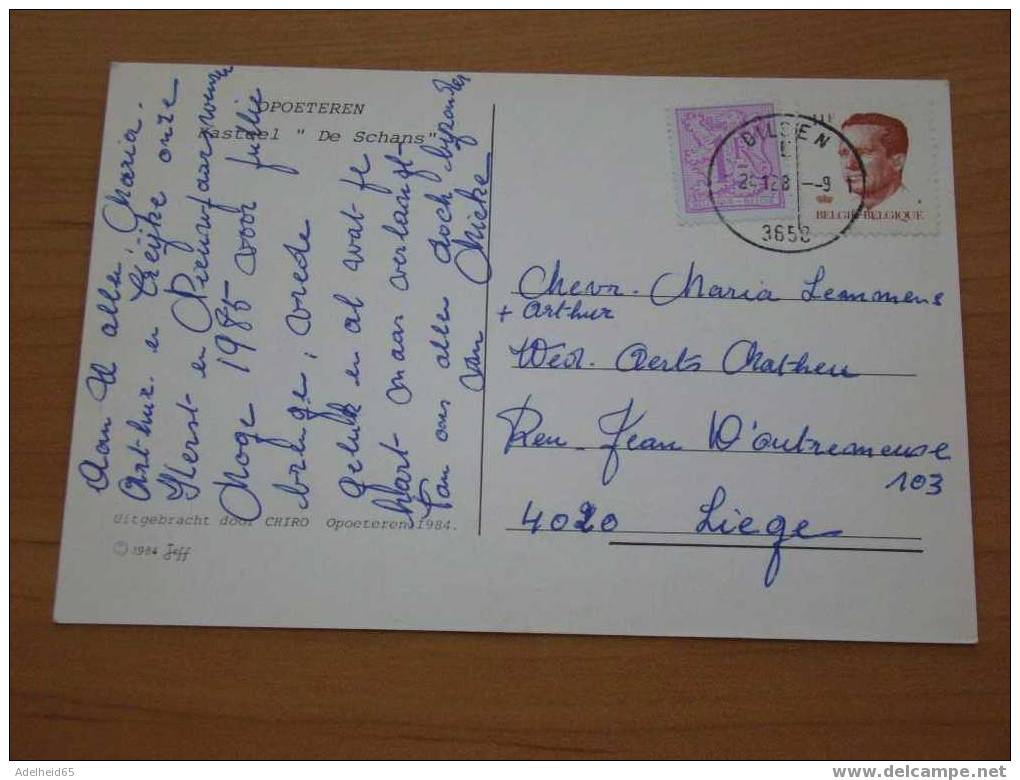 OPOETEREN
Kasteel " De Schans"
Aan U allen, Maria.
Arthur. en Creijke onze
Kerst- en Nieuwjaarwensen
Moge 1985 voor jullie
brenge, vrede
geluk en al wat je
hart maar verlangt
Van ons allen doch bijzonder
van Mieke
Uitgebracht door CHIRO Opoeteren 1984.
© 1984 Jeff
DILSEN
3650
BELGIE-BELGIQUE
Mevr. Maria Lemmens
+ Arthur
Wed. Aerts Matheu
Reu Jean D'outremeuse
103
4020 Liege
Adelheid65
www.delcampe.net